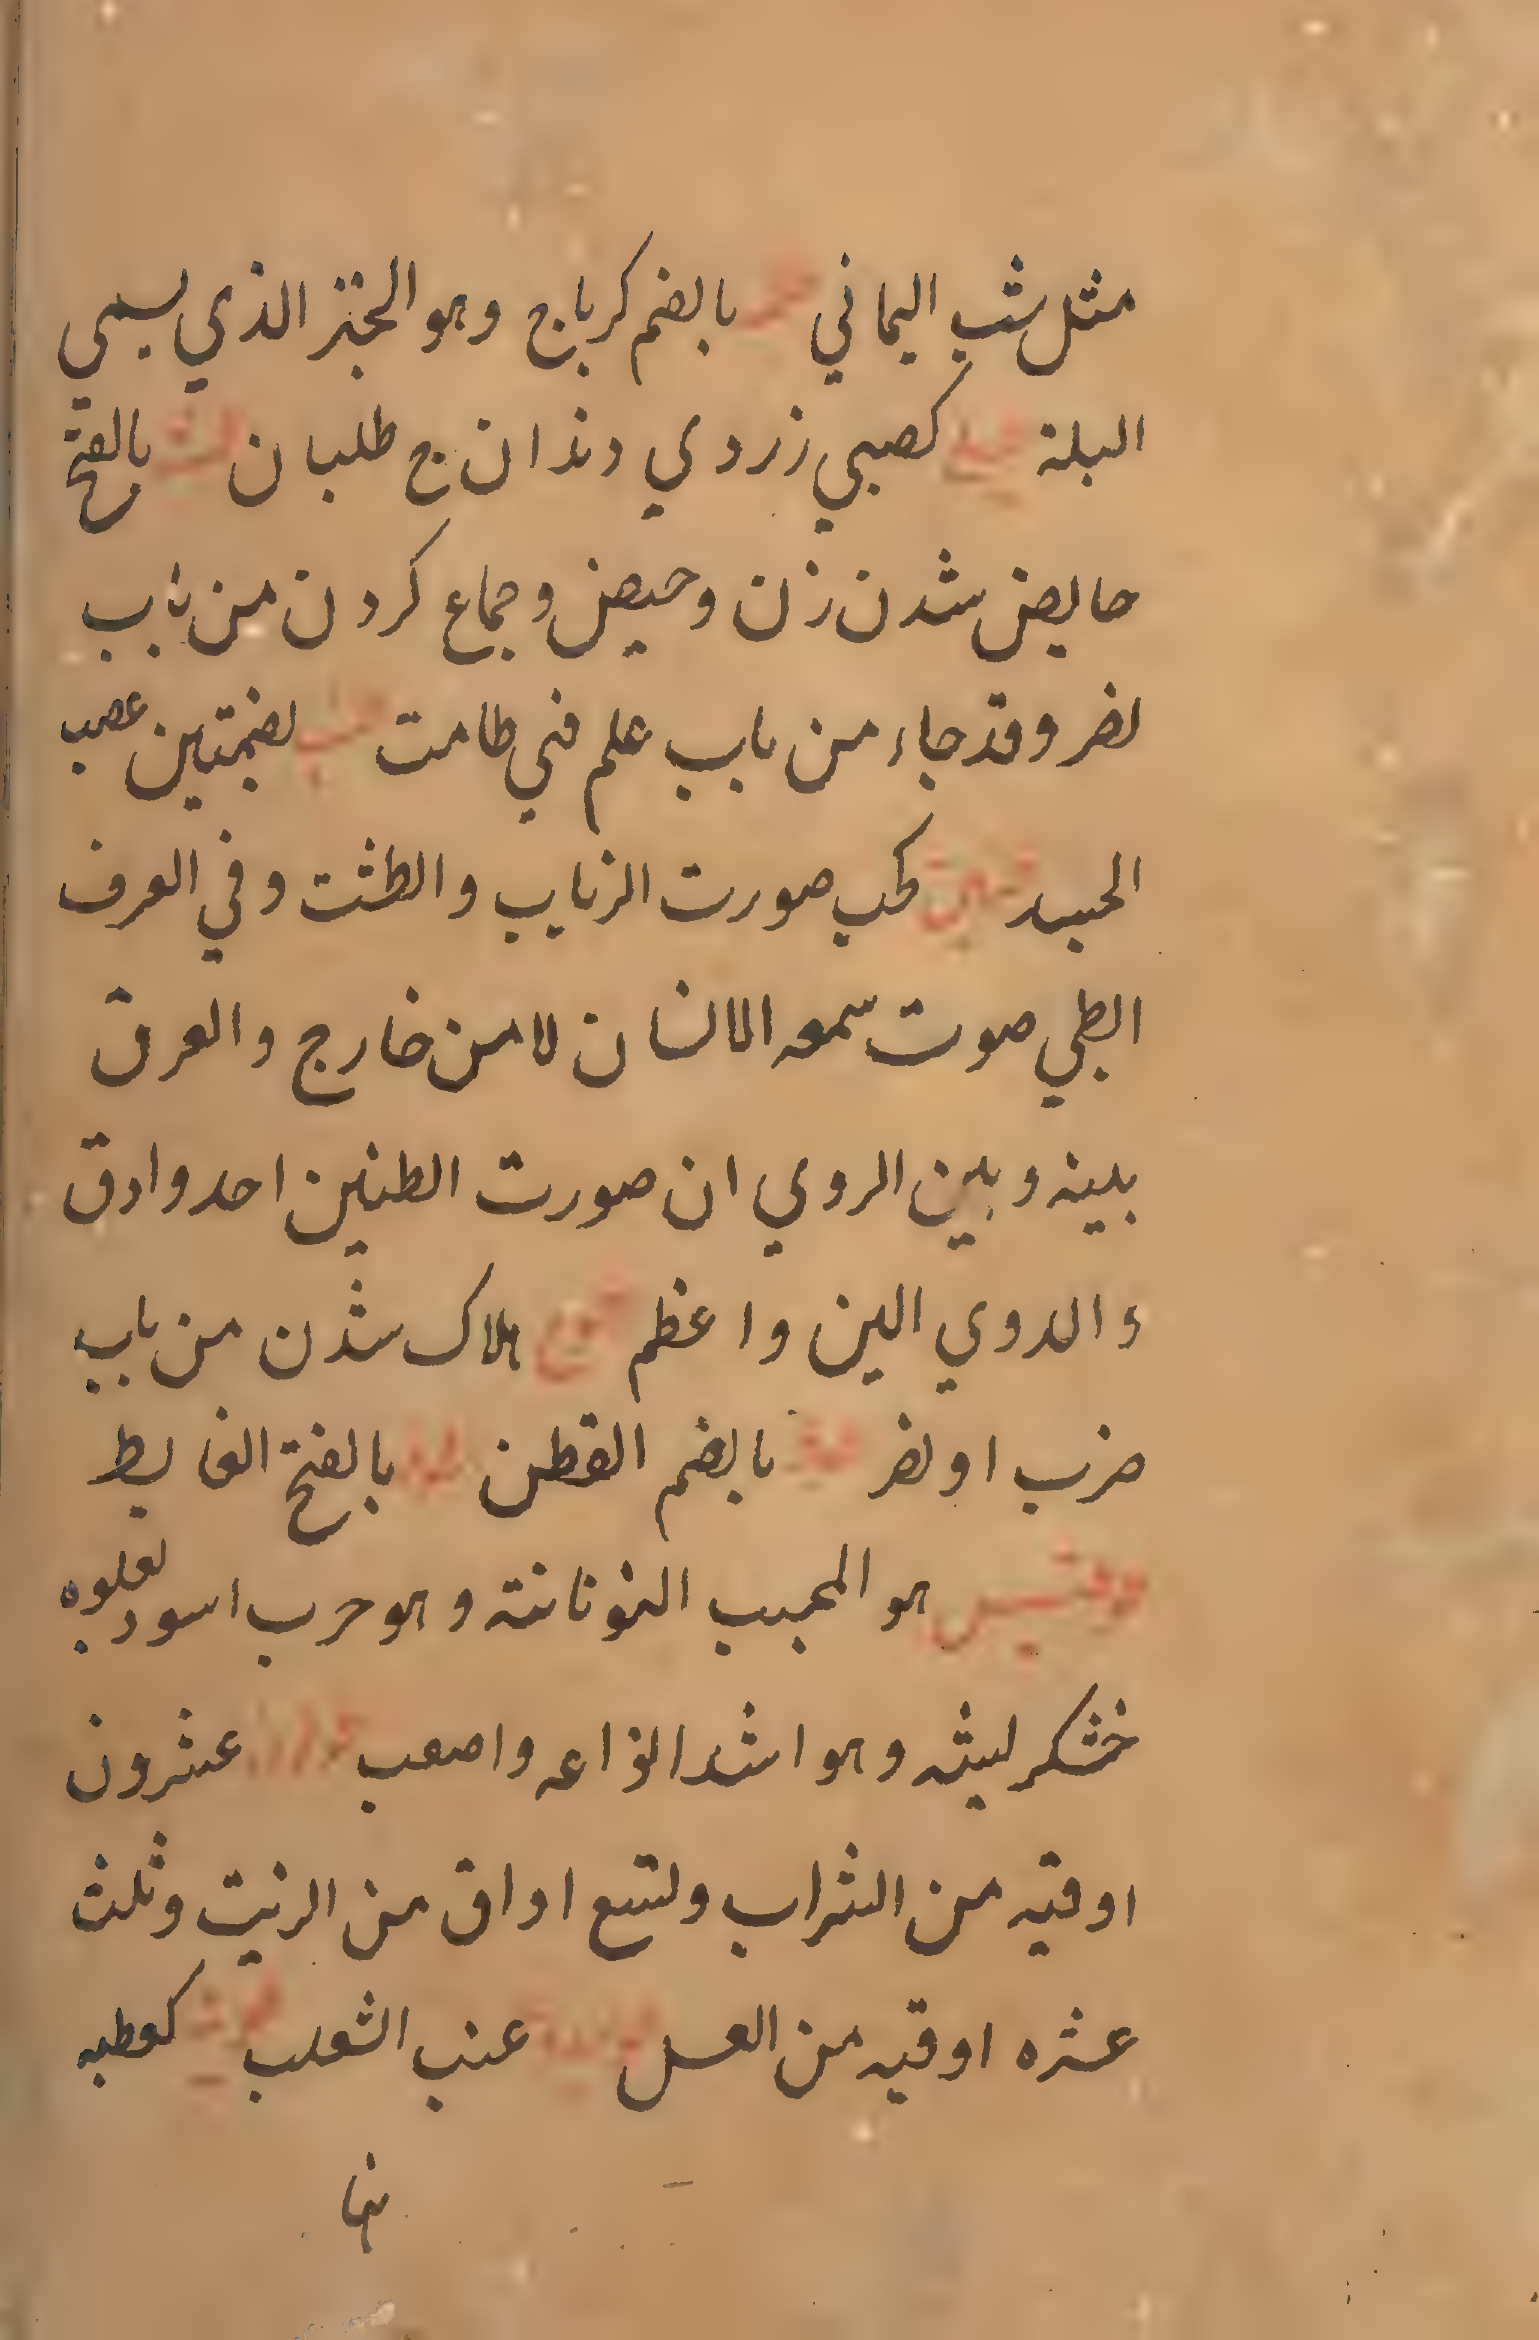 مثل شب اليماني بالضم كرباج وهو الخبز الذي يسمي
البلة كصبي زردي دندان ج طلبان بالفتح
حايض شدن زن وحيض وجماع كردن من باب
نصر وقد جاء من باب علم فهي طامت بضمتين عصب
الجسد كحب صورت الزباب والطشت وفي العرف
الطبي صوت سمعه الانسان لا من خارج والعرق
بينه وبين الروي ان صورت الطنين احد وادق
والدوي الين واعظم هلاك شدن من باب
ضرب او نصر بالضم القطن بالفتح الغايط
هو المجبب وهو جرب اسود يعلوه
خشكر ليشه وهو اشد انواعه واصعب عشرون
اوقيه من الشراب وتسع اواق من الزيت وثلث
عشره اوقيه من العسل عنب الثعلب كعطبه